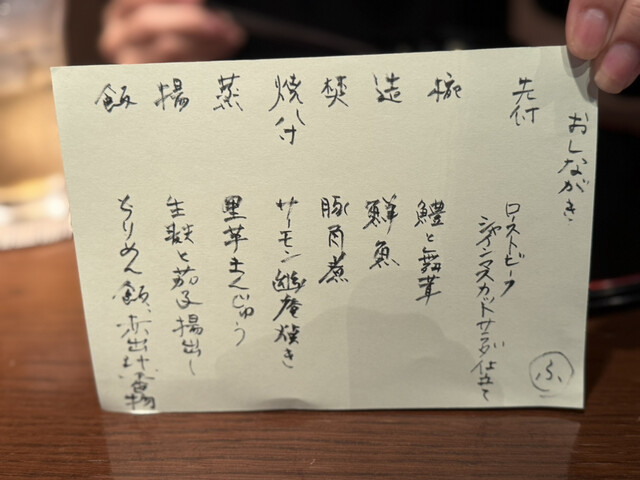 おしながき
先付
ローストビーフ
シャインマスカットサラダ仕立て
椀
鱧と舞茸
造
鮮魚
焚
豚肉煮
焼八寸
サーモン幽庵焼き
蒸
里芋まんじゅう
揚
生麩と茄子揚出し
飯
ちりめん飯、赤出汁、香物
ふ